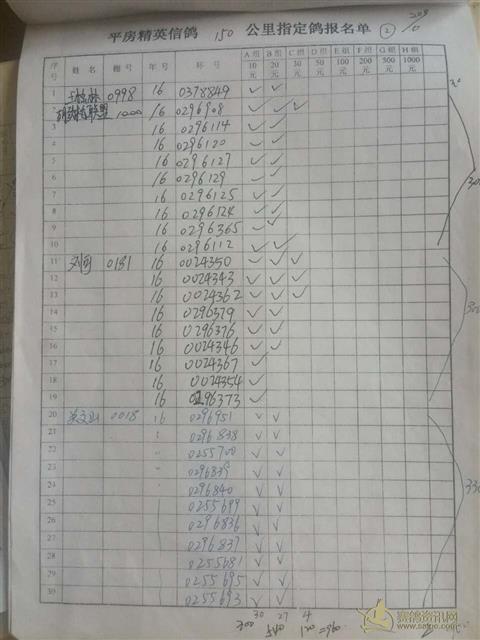 平房精英信鸽 150 公里指定鸽报名单 ②
序号 姓名 棚号 年号 环号 A组10元 B组20元 C组30元 D组50元 E组100元 F组200元 G组500元 H组1000元
1 0998 16 0378849 ✓ ✓
2 联盟 1000 16 0296908 ✓ ✓ ✓
3 16 0296114 ✓ ✓
4 16 0296120 ✓ ✓
5 16 0296127 ✓ ✓
6 16 0296129 ✓ ✓
7 16 0296125 ✓ ✓
8 16 0296124 ✓ ✓
9 16 0296365 ✓ ✓
10 16 0296112 ✓ ✓
11 刘 0181 16 0024350 ✓ ✓ ✓
12 16 0024343 ✓ ✓ ✓
13 16 0024362 ✓ ✓ ✓
14 16 0296379 ✓ ✓
15 16 0296376 ✓ ✓
16 16 0024346 ✓ ✓
17 16 0024367 ✓
18 16 0024354 ✓
19 16 0296373 ✓
20 0018 16 0296951 ✓ ✓
21 0296838 ✓ ✓
22 0255700 ✓ ✓
23 0296839 ✓ ✓
24 0296840 ✓ ✓
25 0255699 ✓ ✓
26 0296836 ✓ ✓
27 0296837 ✓ ✓
28 0255681 ✓ ✓
29 0255695 ✓ ✓
30 0255693 ✓ ✓
30 27 4
300 540 120 =960
赛鸽资讯网
www.saige.com